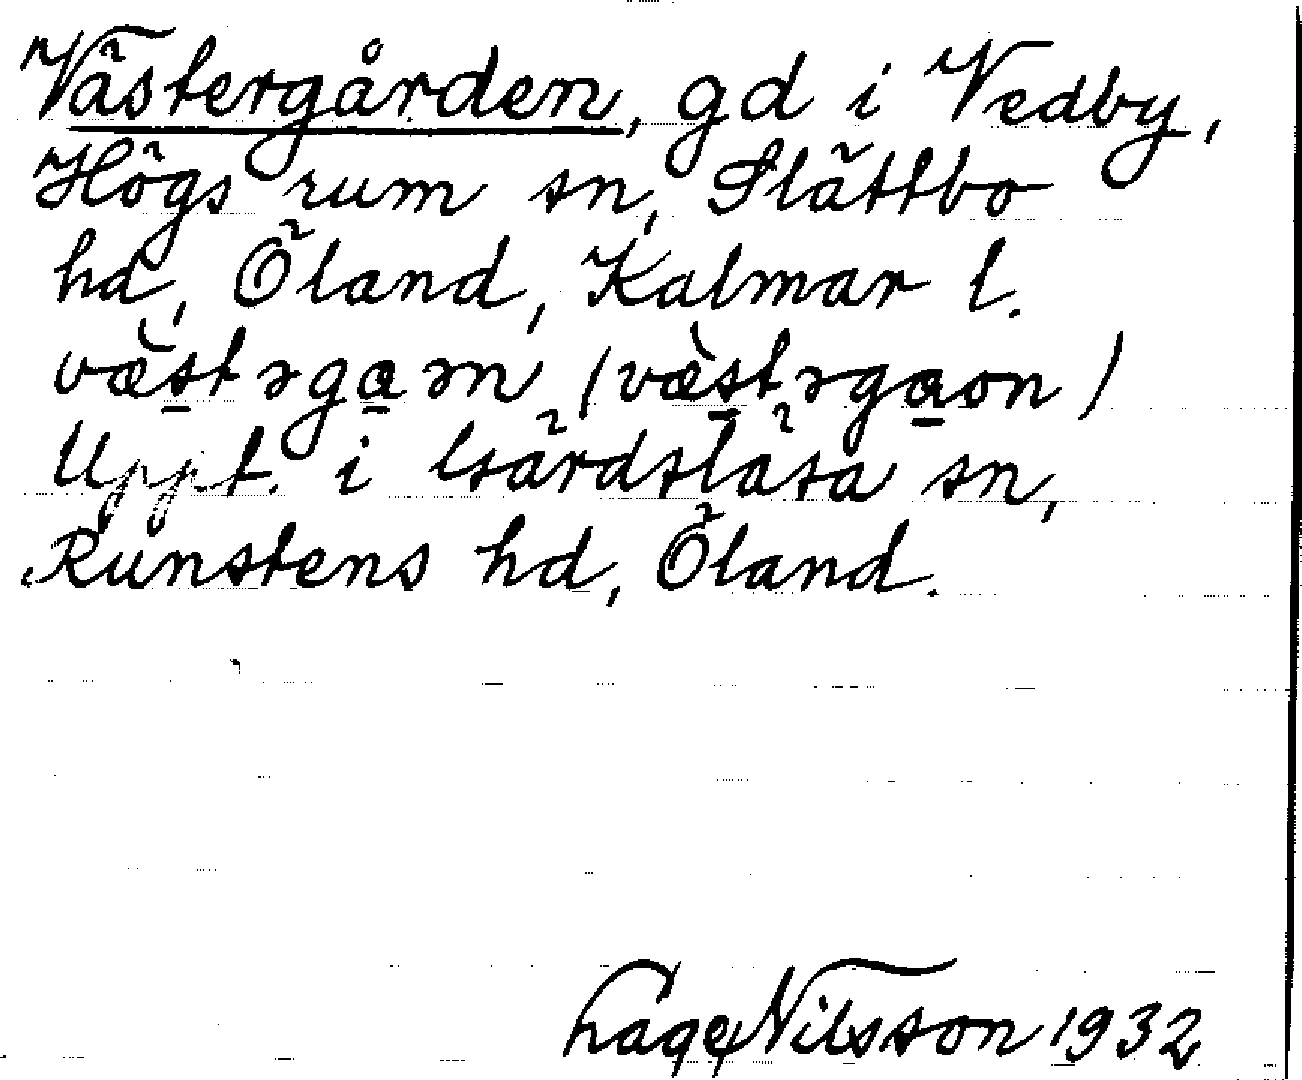 Västergården, gd i Vedby,
Högs rum sn, Slättbo
hd, Öland, Kalmar l.
væ̀stərgɑən (væ̀stərgɑon)
Uppt. i Gärdslösa sn,
Runstens hd, Öland.
Lage Nilsson 1932